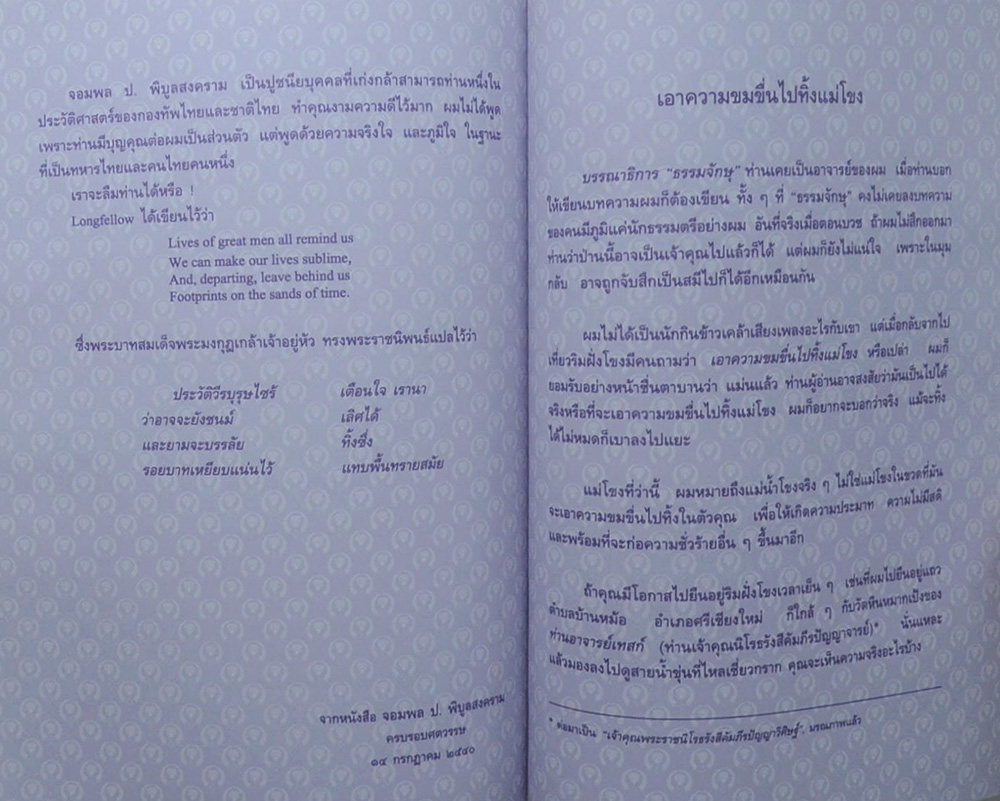 จอมพล ป. พิบูลสงคราม เป็นปูชนียบุคคลที่เก่งกล้าสามารถท่านหนึ่งใน
ประวัติศาสตร์ของกองทัพไทยและชาติไทย ทำคุณงามความดีไว้มาก ผมไม่ได้พูด
เพราะท่านมีบุญคุณต่อผมเป็นส่วนตัว แต่พูดด้วยความจริงใจ และภูมิใจ ในฐานะ
ที่เป็นทหารไทยและคนไทยคนหนึ่ง
เราจะลืมท่านได้หรือ !
Longfellow ได้เขียนไว้ว่า
Lives of great men all remind us
We can make our lives sublime,
And, departing, leave behind us
Footprints on the sands of time.
ซึ่งพระบาทสมเด็จพระมงกุฎเกล้าเจ้าอยู่หัว ทรงพระราชนิพนธ์แปลไว้ว่า
ประวัติวีรบุรุษไซร้ เตือนใจ เรานา
ว่าอาจจะยังชนม์ เลิศได้
และยามจะบรรลัย ทิ้งซึ่ง
รอยบาทเหยียบแน่นไว้ แทบพื้นทรายสมัย
จากหนังสือ จอมพล ป. พิบูลสงคราม
ครบรอบศตวรรษ
๑๔ กรกฎาคม ๒๕๔๐
เอาความขมขื่นไปทิ้งแม่โขง
บรรณาธิการ "ธรรมจักษุ" ท่านเคยเป็นอาจารย์ของผม เมื่อท่านบอก
ให้เขียนบทความผมก็ต้องเขียน ทั้ง ๆ ที่ "ธรรมจักษุ" คงไม่เคยลงบทความ
ของคนมีภูมิแค่นักธรรมตรีอย่างผม อันที่จริงเมื่อตอนบวช ถ้าผมไม่สึกออกมา
ท่านว่าป่านนี้อาจเป็นเจ้าคุณไปแล้วก็ได้ แต่ผมก็ยังไม่แน่ใจ เพราะในมุม
กลับ อาจถูกจับสึกเป็นสมีไปก็ได้อีกเหมือนกัน
ผมไม่ได้เป็นนักกินข้าวเคล้าเสียงเพลงอะไรกับเขา แต่เมื่อกลับจากไป
เที่ยวริมฝั่งโขงมีคนถามว่า เอาความขมขื่นไปทิ้งแม่โขง หรือเปล่า ผมก็
ยอมรับอย่างหน้าชื่นตาบานว่า แม่นแล้ว ท่านผู้อ่านอาจสงสัยว่ามันเป็นไปได้
จริงหรือที่จะเอาความขมขื่นไปทิ้งแม่โขง ผมก็อยากจะบอกว่าจริง แม้จะทิ้ง
ได้ไม่หมดก็เบาลงไปแยะ
แม่โขงที่ว่านี้ ผมหมายถึงแม่น้ำโขงจริง ๆ ไม่ใช่แม่โขงในขวดที่มัน
จะเอาความขมขื่นไปทิ้งในตัวคุณ เพื่อให้เกิดความประมาท ความไม่มีสติ
และพร้อมที่จะก่อความชั่วร้ายอื่น ๆ ขึ้นมาอีก
ถ้าคุณมีโอกาสไปยืนอยู่ริมฝั่งโขงเวลาเย็น ๆ เช่นที่ผมไปยืนอยู่แถว
ตำบลบ้านหม้อ อำเภอศรีเชียงใหม่ ก็ใกล้ ๆ กับวัดหินหมากเป้งของ
ท่านอาจารย์เทสก์ (ท่านเจ้าคุณนิโรธรังสีคัมภีรปัญญาจารย์)* นั่นแหละ
แล้วมองลงไปดูสายน้ำขุ่นที่ไหลเชี่ยวกราก คุณจะเห็นความจริงอะไรบ้าง
* ต่อมาเป็น "เจ้าคุณพระราชนิโรธรังสีคัมภีรปัญญาวิศิษฐ์", มรณภาพแล้ว